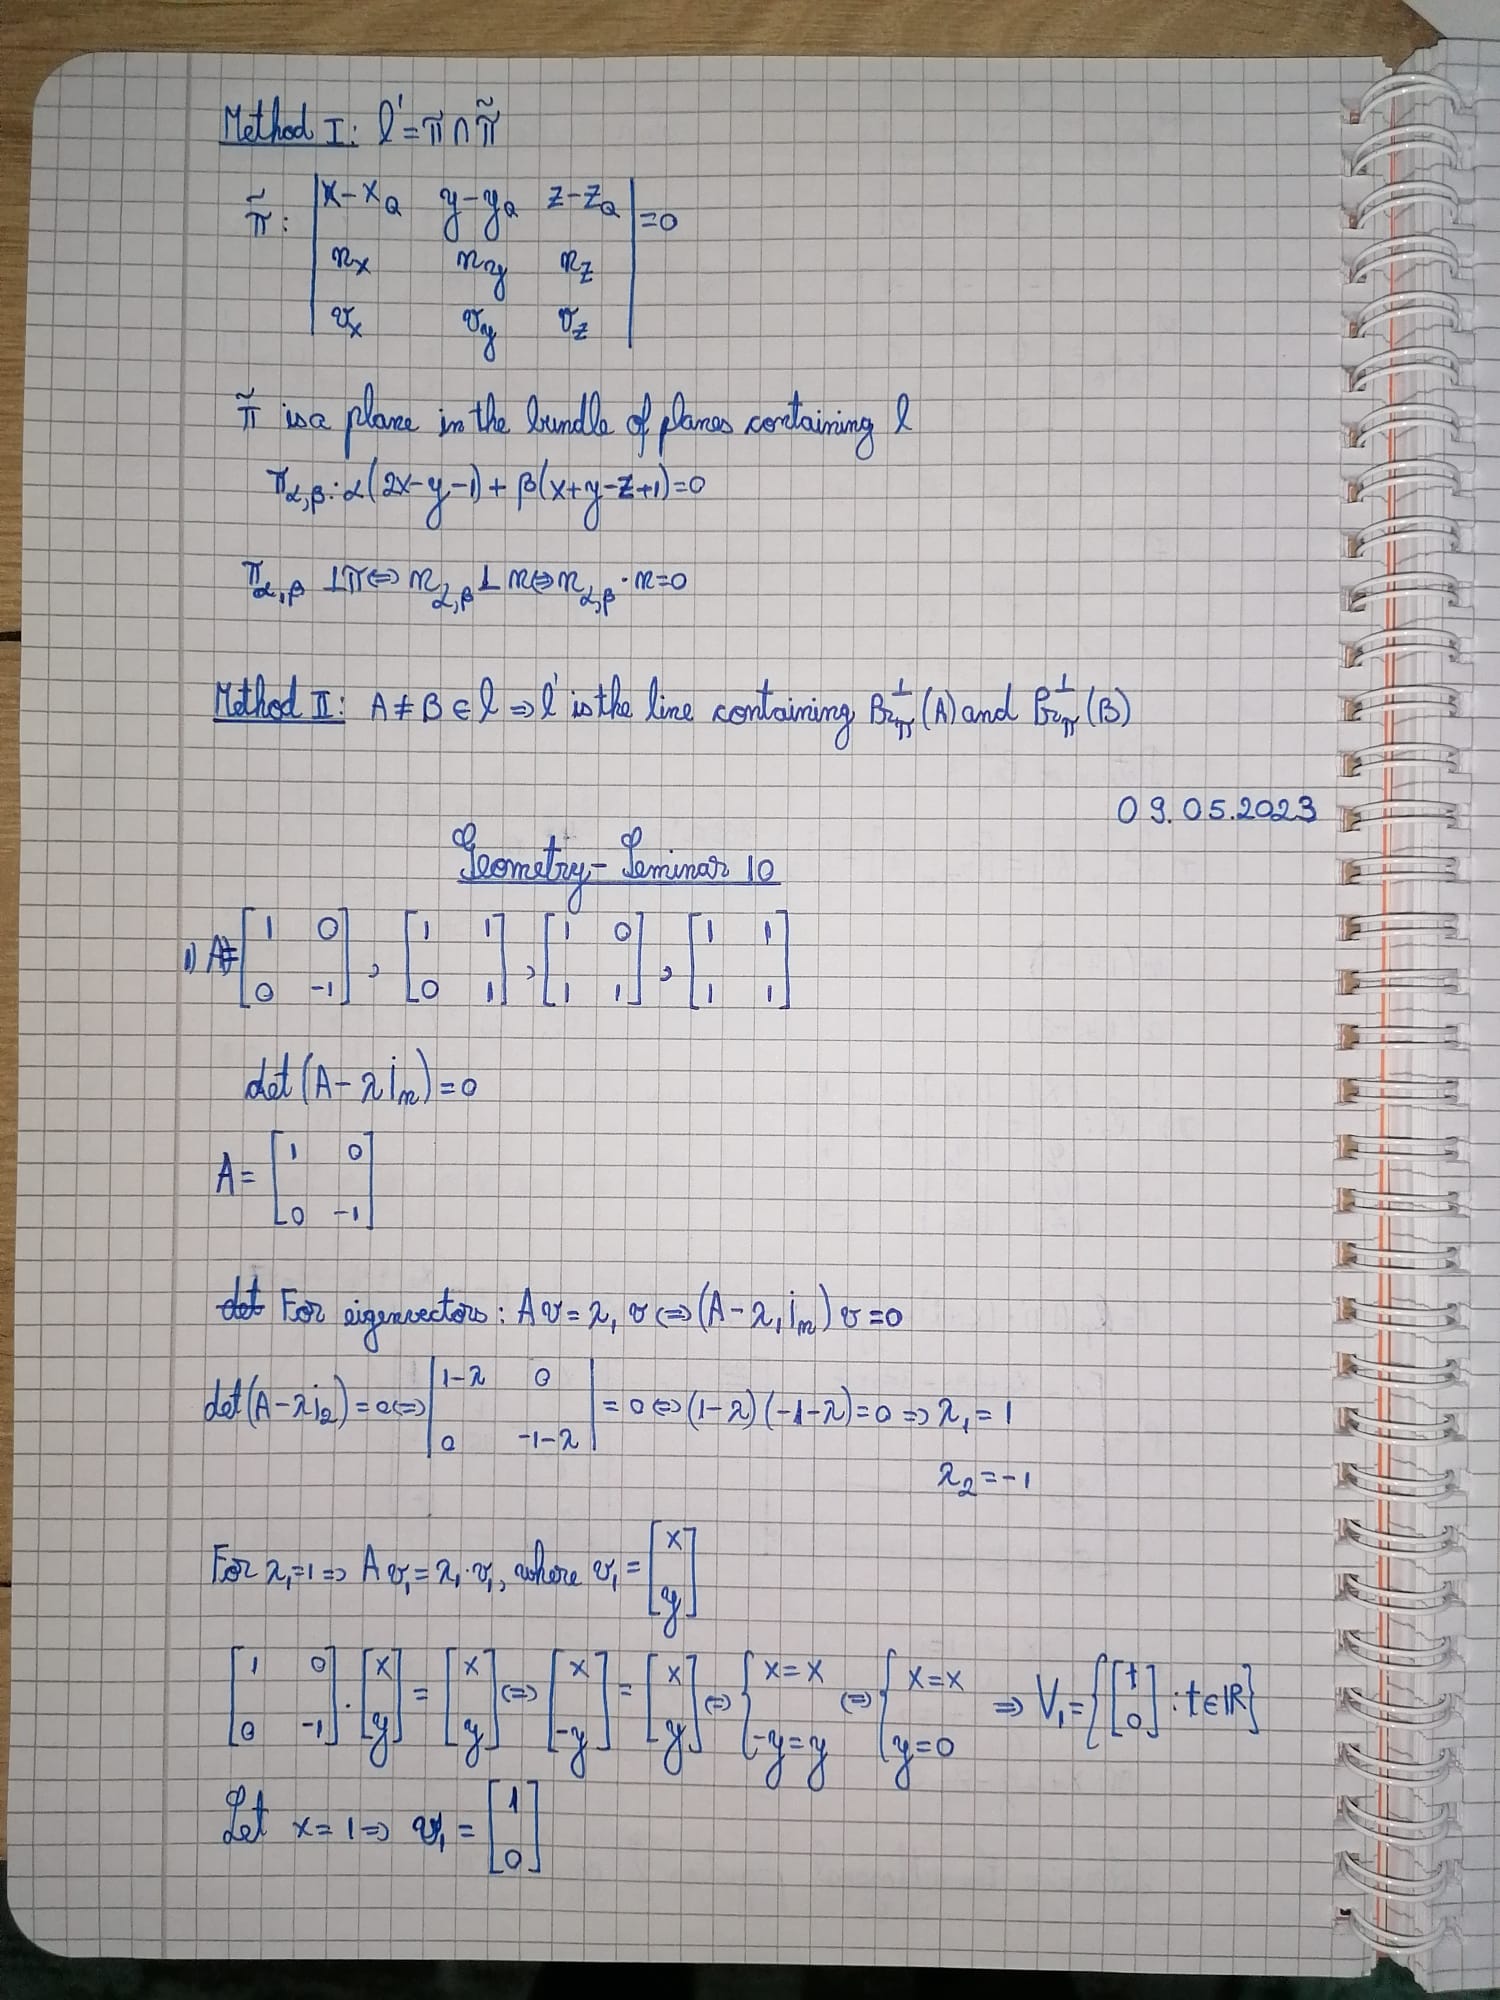 Method I: l' = π ∩ π̃
π̃: | x-x_Q y-y_Q z-z_Q |
| n_x n_y n_z | =0
| v_x v_y v_z |
π̃ is a plane in the bundle of planes containing l
π_α,β: α(2x-y-1) + β(x+y-z+1)=0
π_α,β ⊥ π ⇔ n_α,β ⊥ n ⇔ n_α,β · n=0
Method II: A ≠ B ∈ l ⇒ l' is the line containing Pr_π^⊥(A) and Pr_π^⊥(B)
09.05.2023
Geometry - Seminar 10
1) A= [1 0; 0 -1], [1 1; 0 1], [1 0; 1 1], [1 1; 1 1]
det(A-λI_n)=0
A= [1 0; 0 -1]
det For eigenvectors: Av=λ₁v ⇔ (A-λ₁I_n)v=0
det(A-λI₂)=0 ⇔ |1-λ 0; 0 -1-λ| = 0 ⇔ (1-λ)(-1-λ)=0 ⇒ λ₁=1
λ₂=-1
For λ₁=1 ⇒ Av₁=λ₁·v₁, where v₁= [x; y]
[1 0; 0 -1] · [x; y] = [x; y] ⇔ [x; -y] = [x; y] ⇔ {x=x; -y=y ⇔ {x=x; y=0 ⇒ V₁={[t; 0] : t∈ℝ}
Let x=1 ⇒ v₁ = [1; 0]